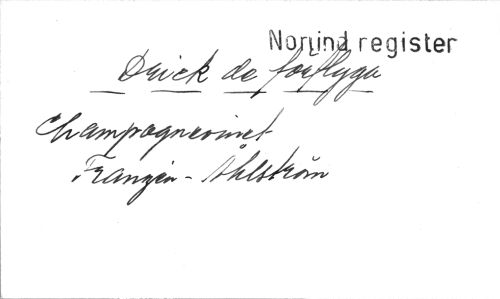 Norlind register
Drick de förflyga
Champagnevinet
Franzén - Åhlström